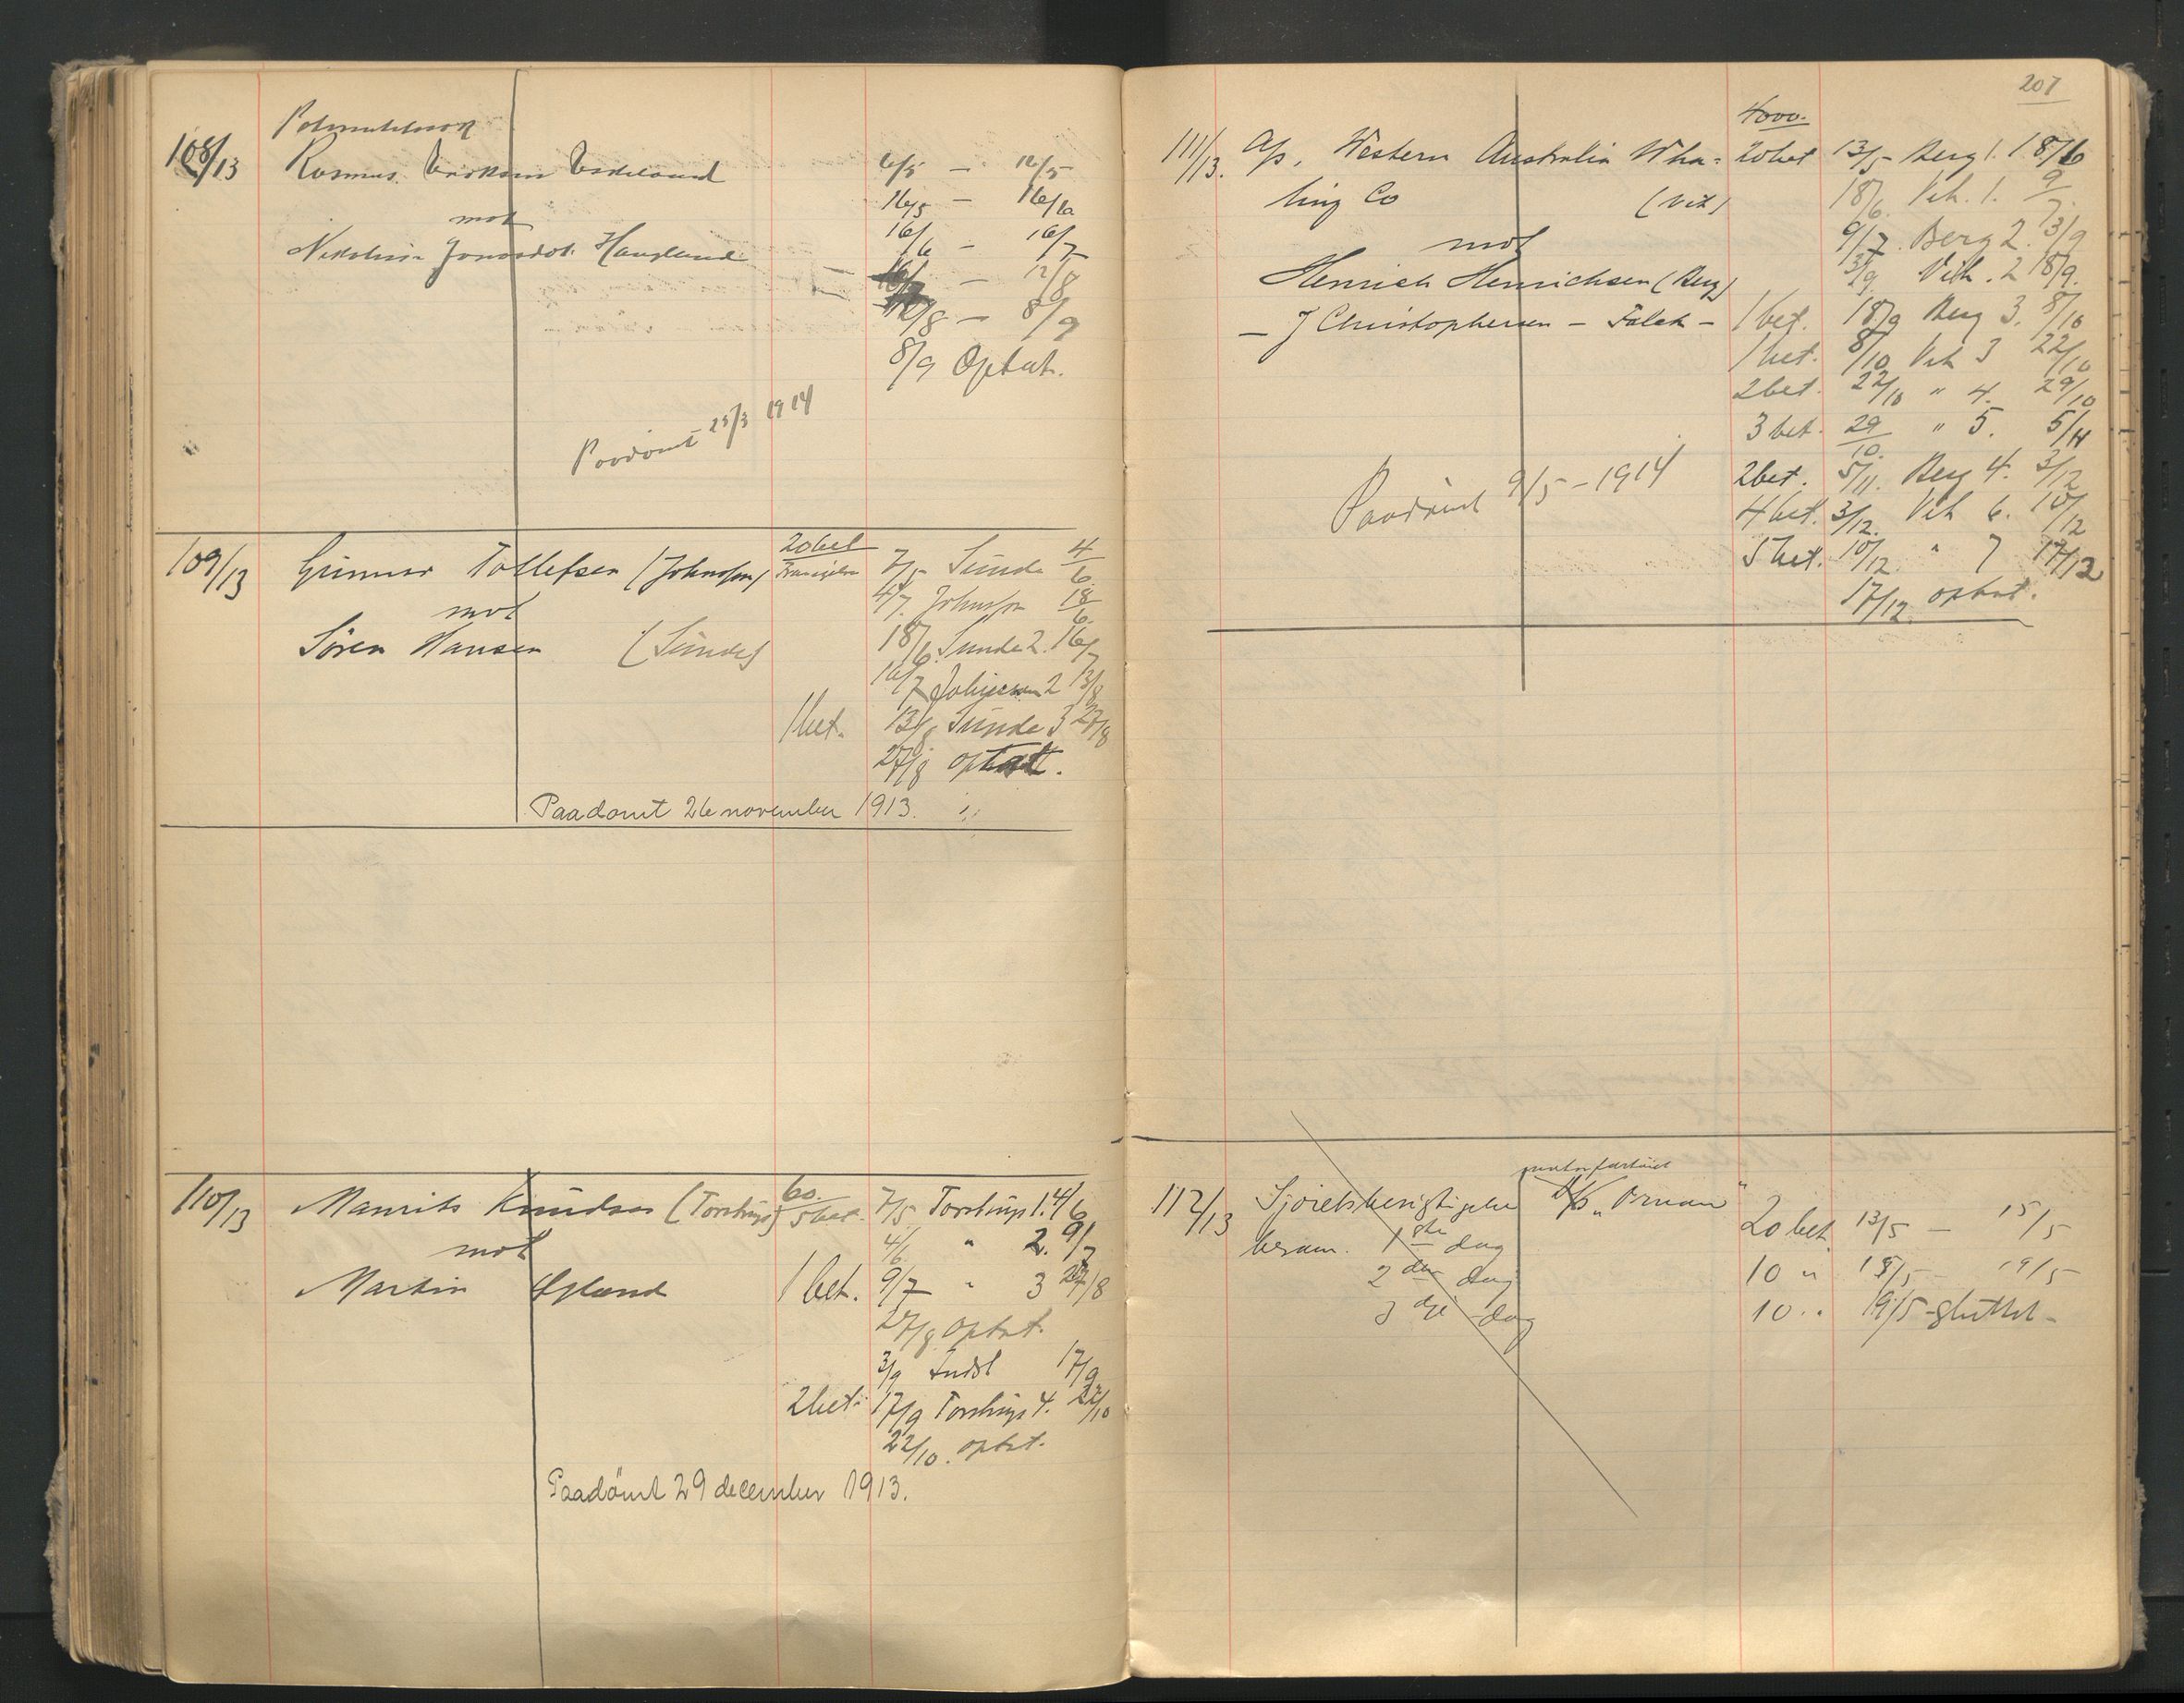 108/13
Rasmus Eriksen Eskeland
6/5 — 16/5
16/5 — 16/6
mot
16/6 — 16/7
Nikoline Jonasdot. Haugland
— 12/8
12/8 — 8/9
8/9 Optat.
Paadømt 25/3 1914
109/13
Gunnar Tollefsen (Johnsen)
20 bet
7/5 Sunde 4/6
mot
4/7 Johnsen 18/6
Søren Hansen (Sunde)
18/6 Sunde 2. 16/7
16/7 Johnsen 2 13/8
1 bet. 13/8 Sunde 3 27/8
27/8 optat.
Paadømt 26 november 1913.
110/13
Maurits Knudsen (Torstrup)
60.
5 bet. 7/5 Torstrup 1. 4/6
mot
4/6 " 2. 9/7
Martin Øgland
1 bet. 9/7 " 3 27/8
27/8 optat.
3/9 Indst 17/9
2 bet. 17/9 Torstrup 4. 22/10
22/10. optat.
Paadømt 29 december 1913.
207
4000.
111/13. A/s. Western Australia Wha-
20 bet 13/5 Berg 1. 18/6
ling Co (Vik)
18/6 Vik. 1. 9/7.
mot
9/7. Berg 2. 3/9
Henrich Henrichsen (Berg)
3/9 Vik. 2 18/9.
— J Christophersen — Falck —
1 bet. 18/9 Berg 3. 8/10
1 bet. 8/10 Vik 3 22/10
2 bet. 22/10 " 4. 29/10
3 bet. 29/10. " 5. 5/11
Paadømt 9/5 - 1914
2 bet. 5/11. Berg 4. 3/12
4 bet. 3/12. Vik 6. 10/12
5 bet. 10/12. " 7 17/12
17/12. optat.
112/13
Sjøretsbesigtigelse "Ornan"
20 bet. 13/5 — 15/5
besam. 1ste dag
2den dag
10 " 15/5 — 19/5
3dje dag
10 " 19/5 sluttet —